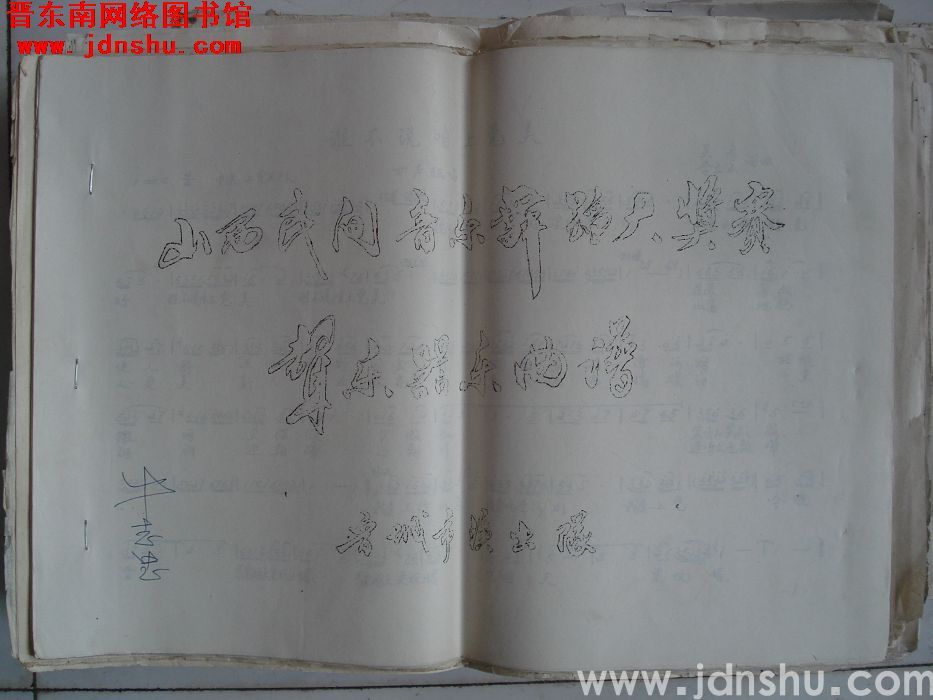 晋东南网络图书馆
www.jdnshu.com
山西民间音乐舞蹈大奖赛
声乐器乐曲谱
晋城市演出队
www.jdnshu.com